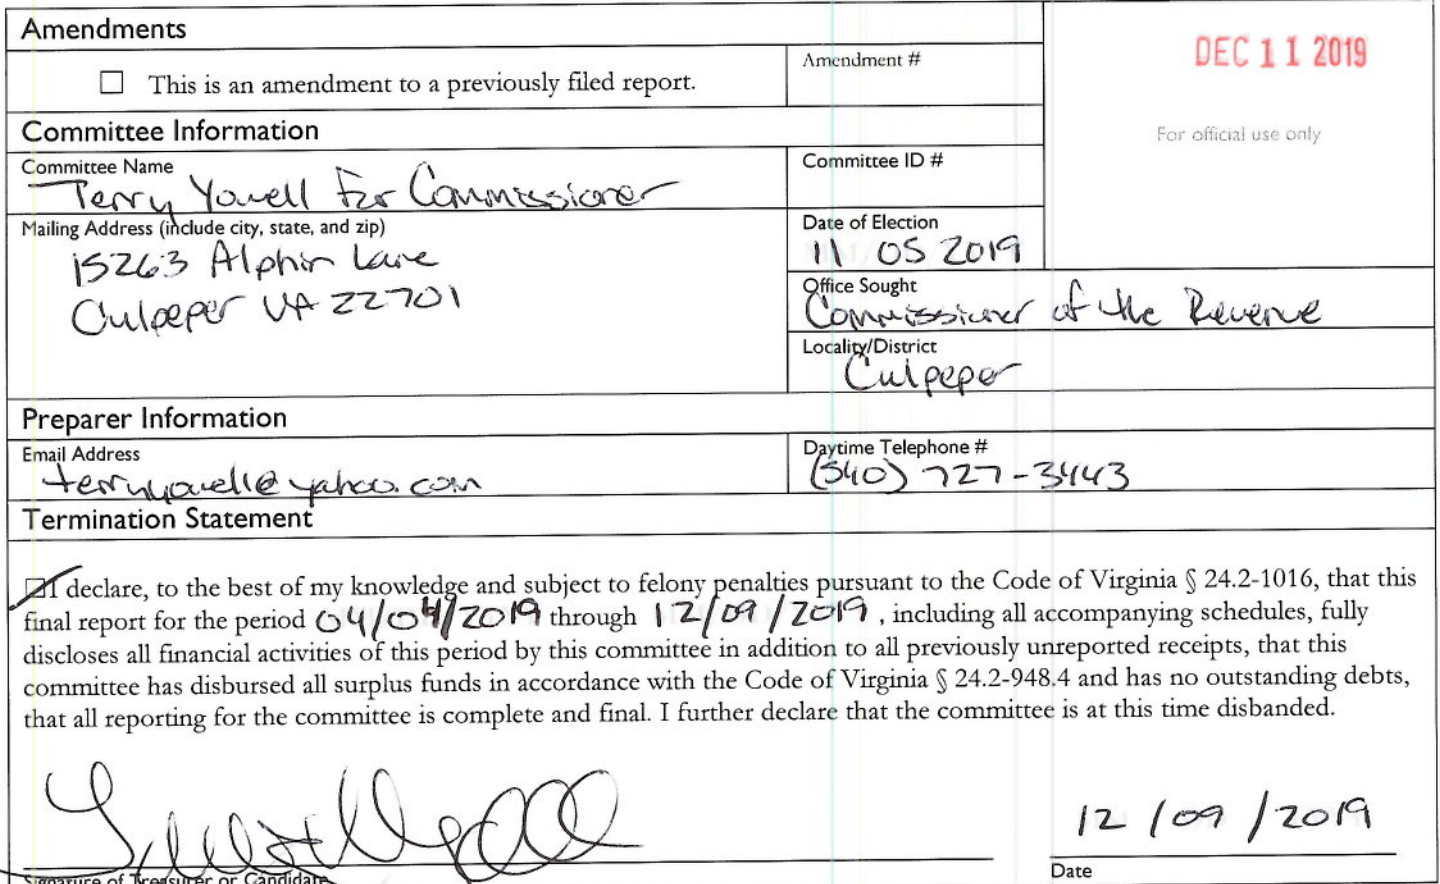 Amendments
☐ This is an amendment to a previously filed report.
Amendment #
DEC 11 2019
For official use only
Committee Information
Committee Name
Terry Yowell For Commissioner
Committee ID #
Mailing Address (include city, state, and zip)
15263 Alphin Lane
Culpeper VA 22701
Date of Election
11 05 2019
Office Sought
Commissioner of the Revenue
Locality/District
Culpeper
Preparer Information
Email Address
terryyowell@yahoo.com
Daytime Telephone #
(540) 727-3443
Termination Statement
I declare, to the best of my knowledge and subject to felony penalties pursuant to the Code of Virginia § 24.2-1016, that this
final report for the period 04/04/2019 through 12/09/2019, including all accompanying schedules, fully
discloses all financial activities of this period by this committee in addition to all previously unreported receipts, that this
committee has disbursed all surplus funds in accordance with the Code of Virginia § 24.2-948.4 and has no outstanding debts,
that all reporting for the committee is complete and final. I further declare that the committee is at this time disbanded.
12/09/2019
Signature of Treasurer or Candidate
Date